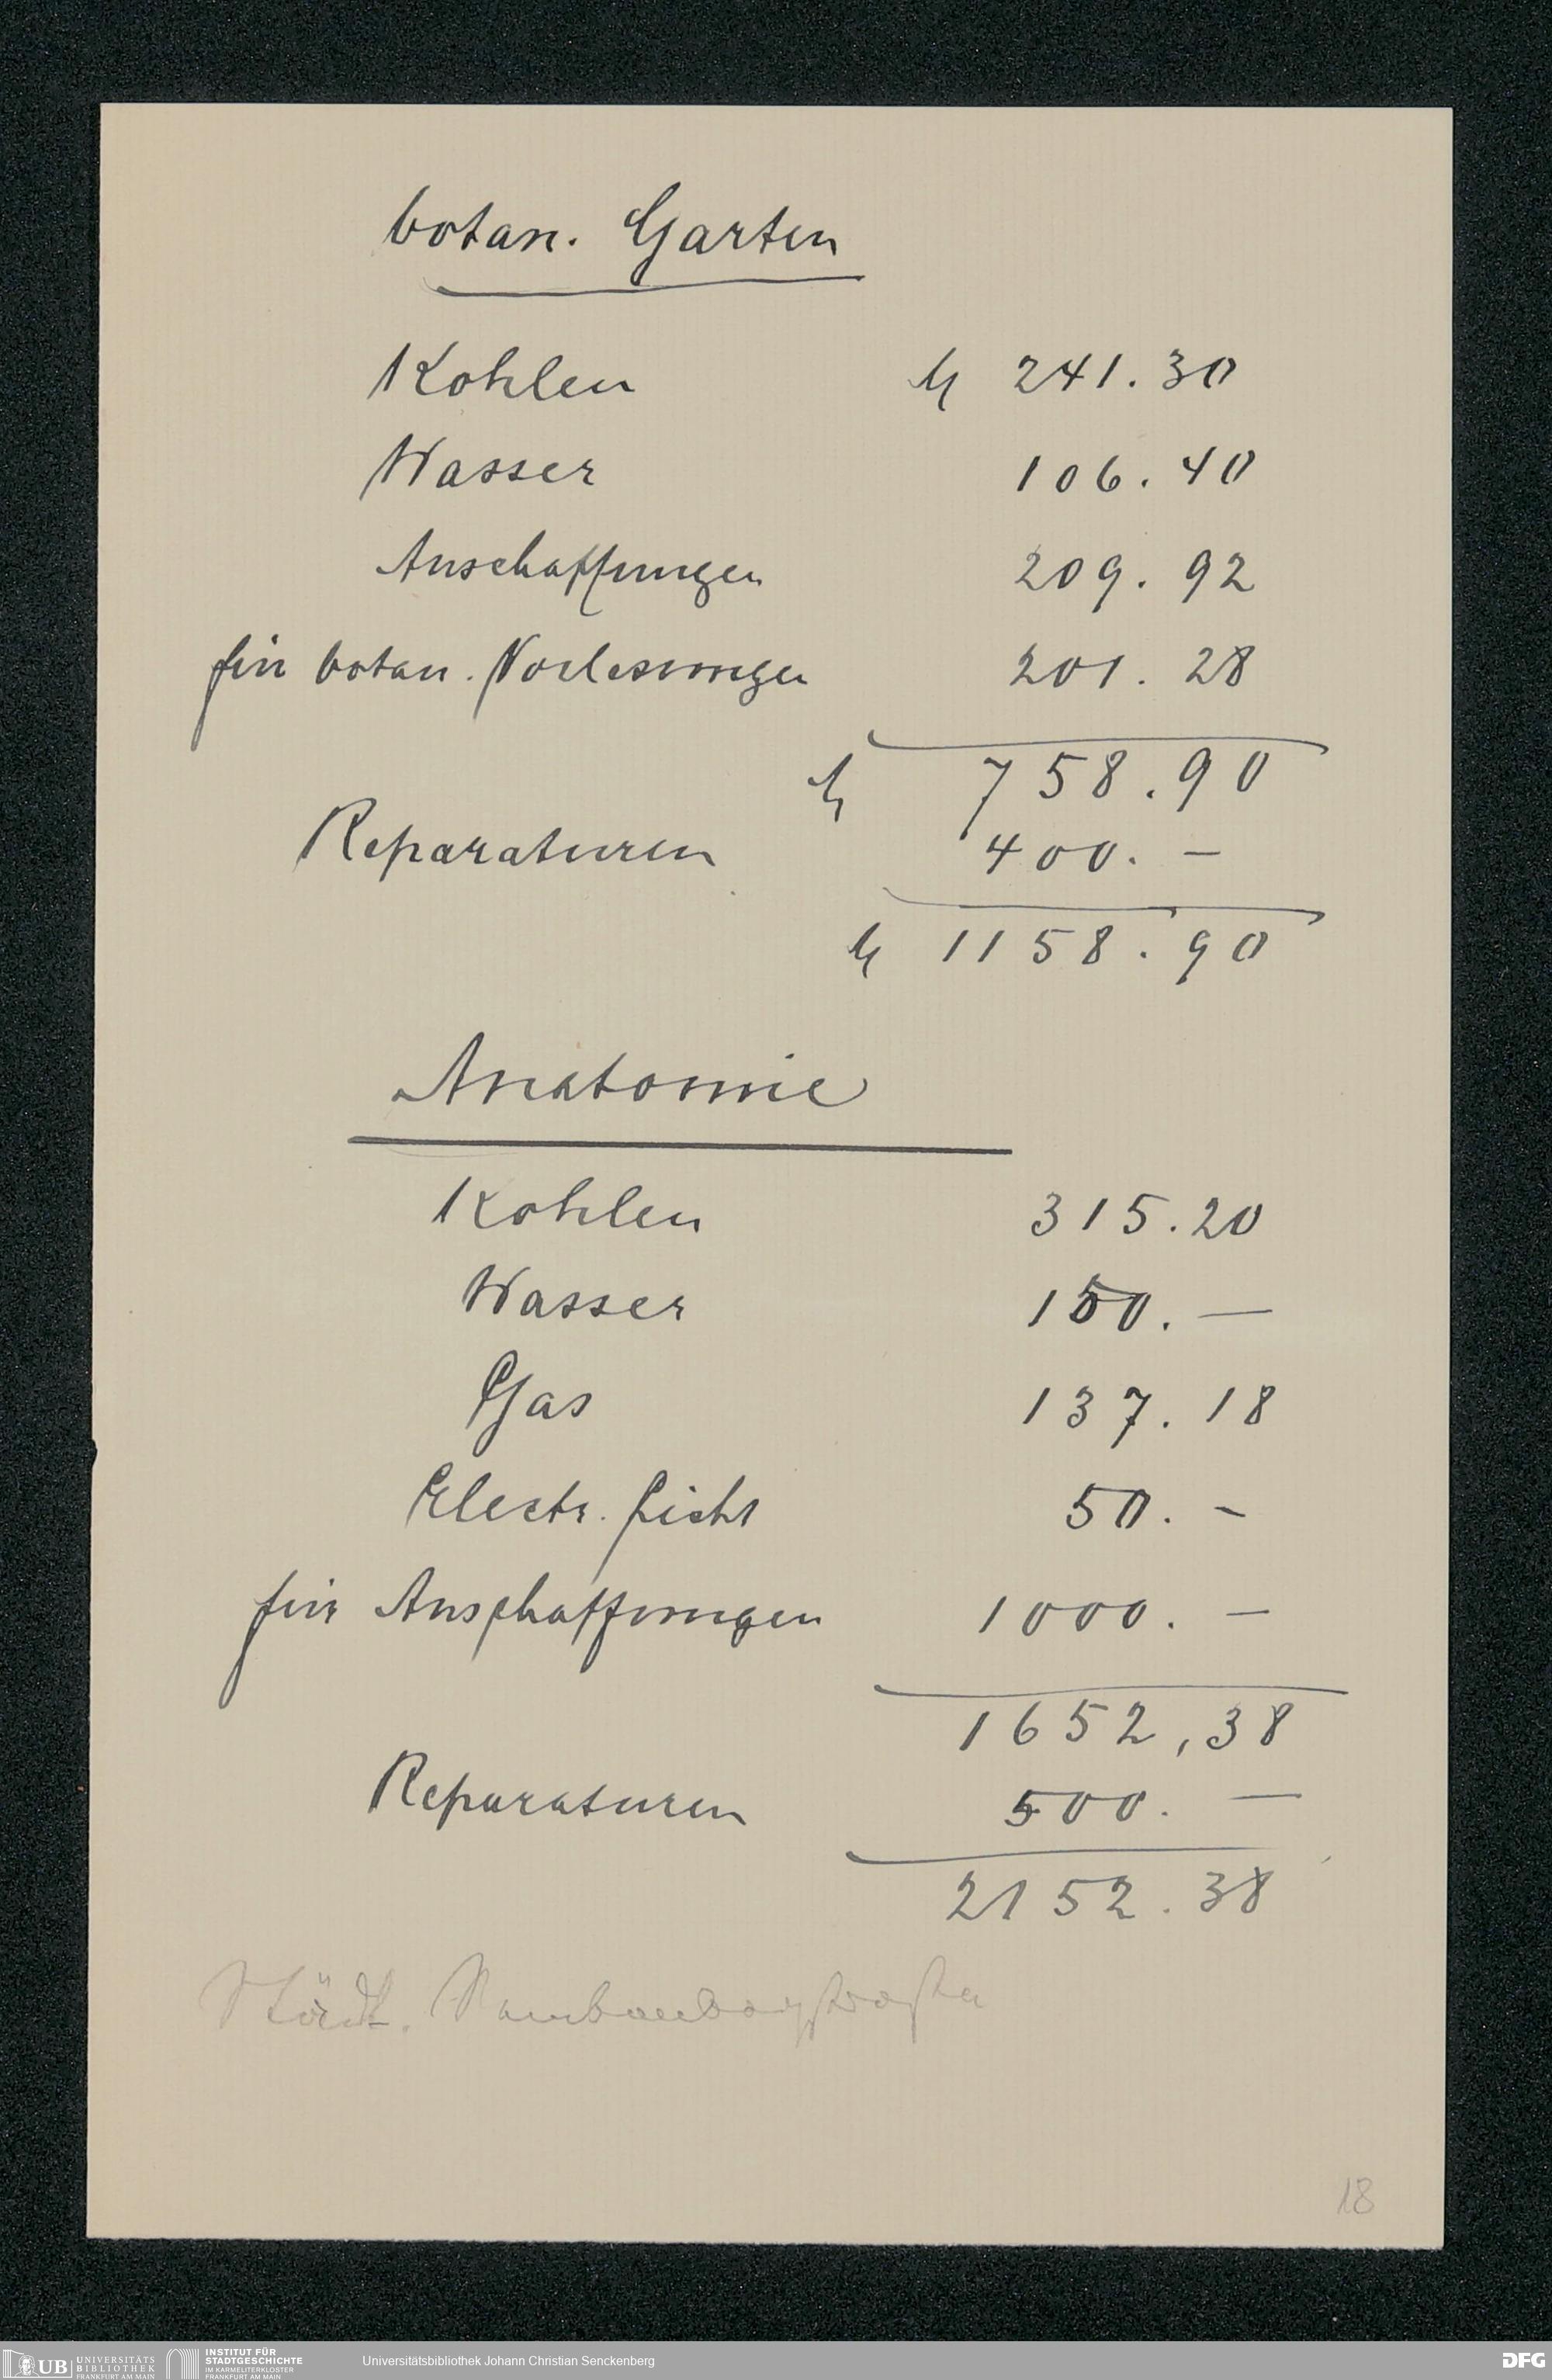 botan. Garten
Kohlen ℳ 241.30
Wasser 106.40
Anschaffungen 209.92
für botan. Vorlesungen 201.28
ℳ 758.90
Reparaturen 400.—
ℳ 1158.90
Anatomie
Kohlen 315.20
Wasser 150.—
Gas 137.18
Electr. Licht 50.-
für Anschaffungen 1000.—
1652,38
Reparaturen 500.—
2152.38
Städt.
18
UB UNIVERSITÄTS
BIBLIOTHEK
FRANKFURT AM MAIN
INSTITUT FÜR
STADTGESCHICHTE
IM KARMELITERKLOSTER
FRANKFURT AM MAIN
Universitätsbibliothek Johann Christian Senckenberg
DFG